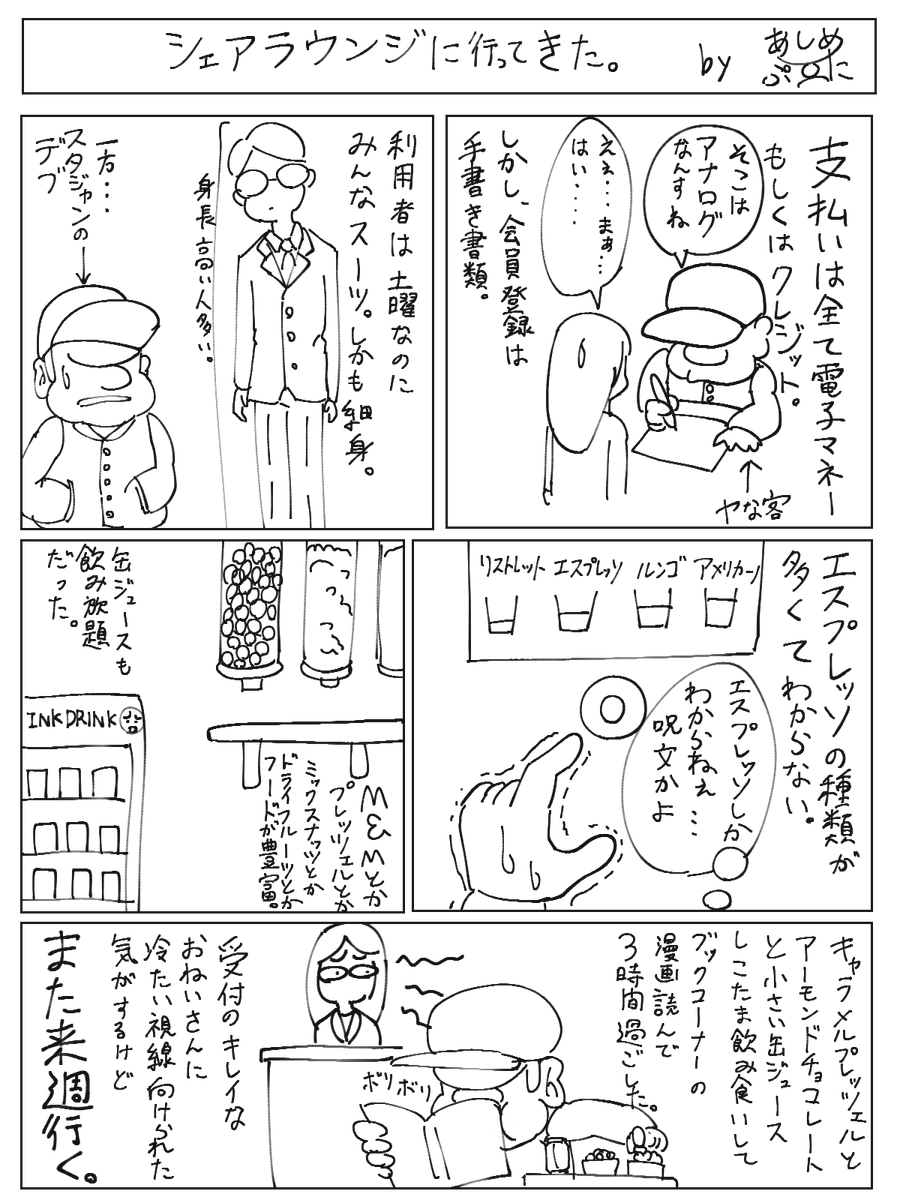 シェアラウンジに行ってきた。
by
あしめ
ぷに
支払いは全て電子マネー
もしくはクレジット。
そこは
アナログ
なんすね
ええ…まぁ…
はい‥‥
しかし、会員登録は
手書き書類。
ヤな客
利用者は土曜なのに
みんなスーツ。しかも細身。
身長高い人多い。
一方…
スタジャンの
デブ
エスプレッソの種類が
多くてわからない。
リストレット
エスプレッソ
ルンゴ
アメリカーノ
エスプレッソしか
わからねぇ…
呪文かよ
M&Mとか
プレッツェルとか
ミックスナッツとか
ドライフルーツとか
フードが豊富。
缶ジュースも
飲み放題
だった。
INK DRINK
キャラメルプレッツェルと
アーモンドチョコレート
と小さい缶ジュース
しこたま飲み食いして
ブックコーナーの
漫画読んで
3時間過ごした。
ボリボリ
受付のキレイな
おねいさんに
冷たい視線向けられた
気がするけど
また来週行く。